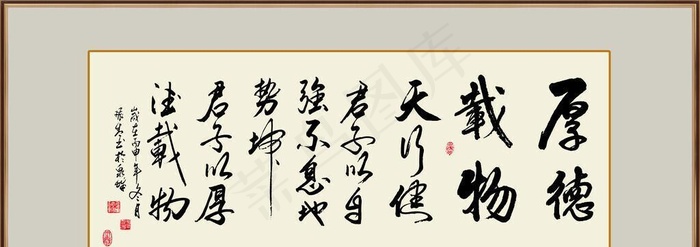 厚德
載物
天行健
君子以自
強不息地
勢坤
君子以厚
德載物
歲在丙申年冬月
菜鸟图库